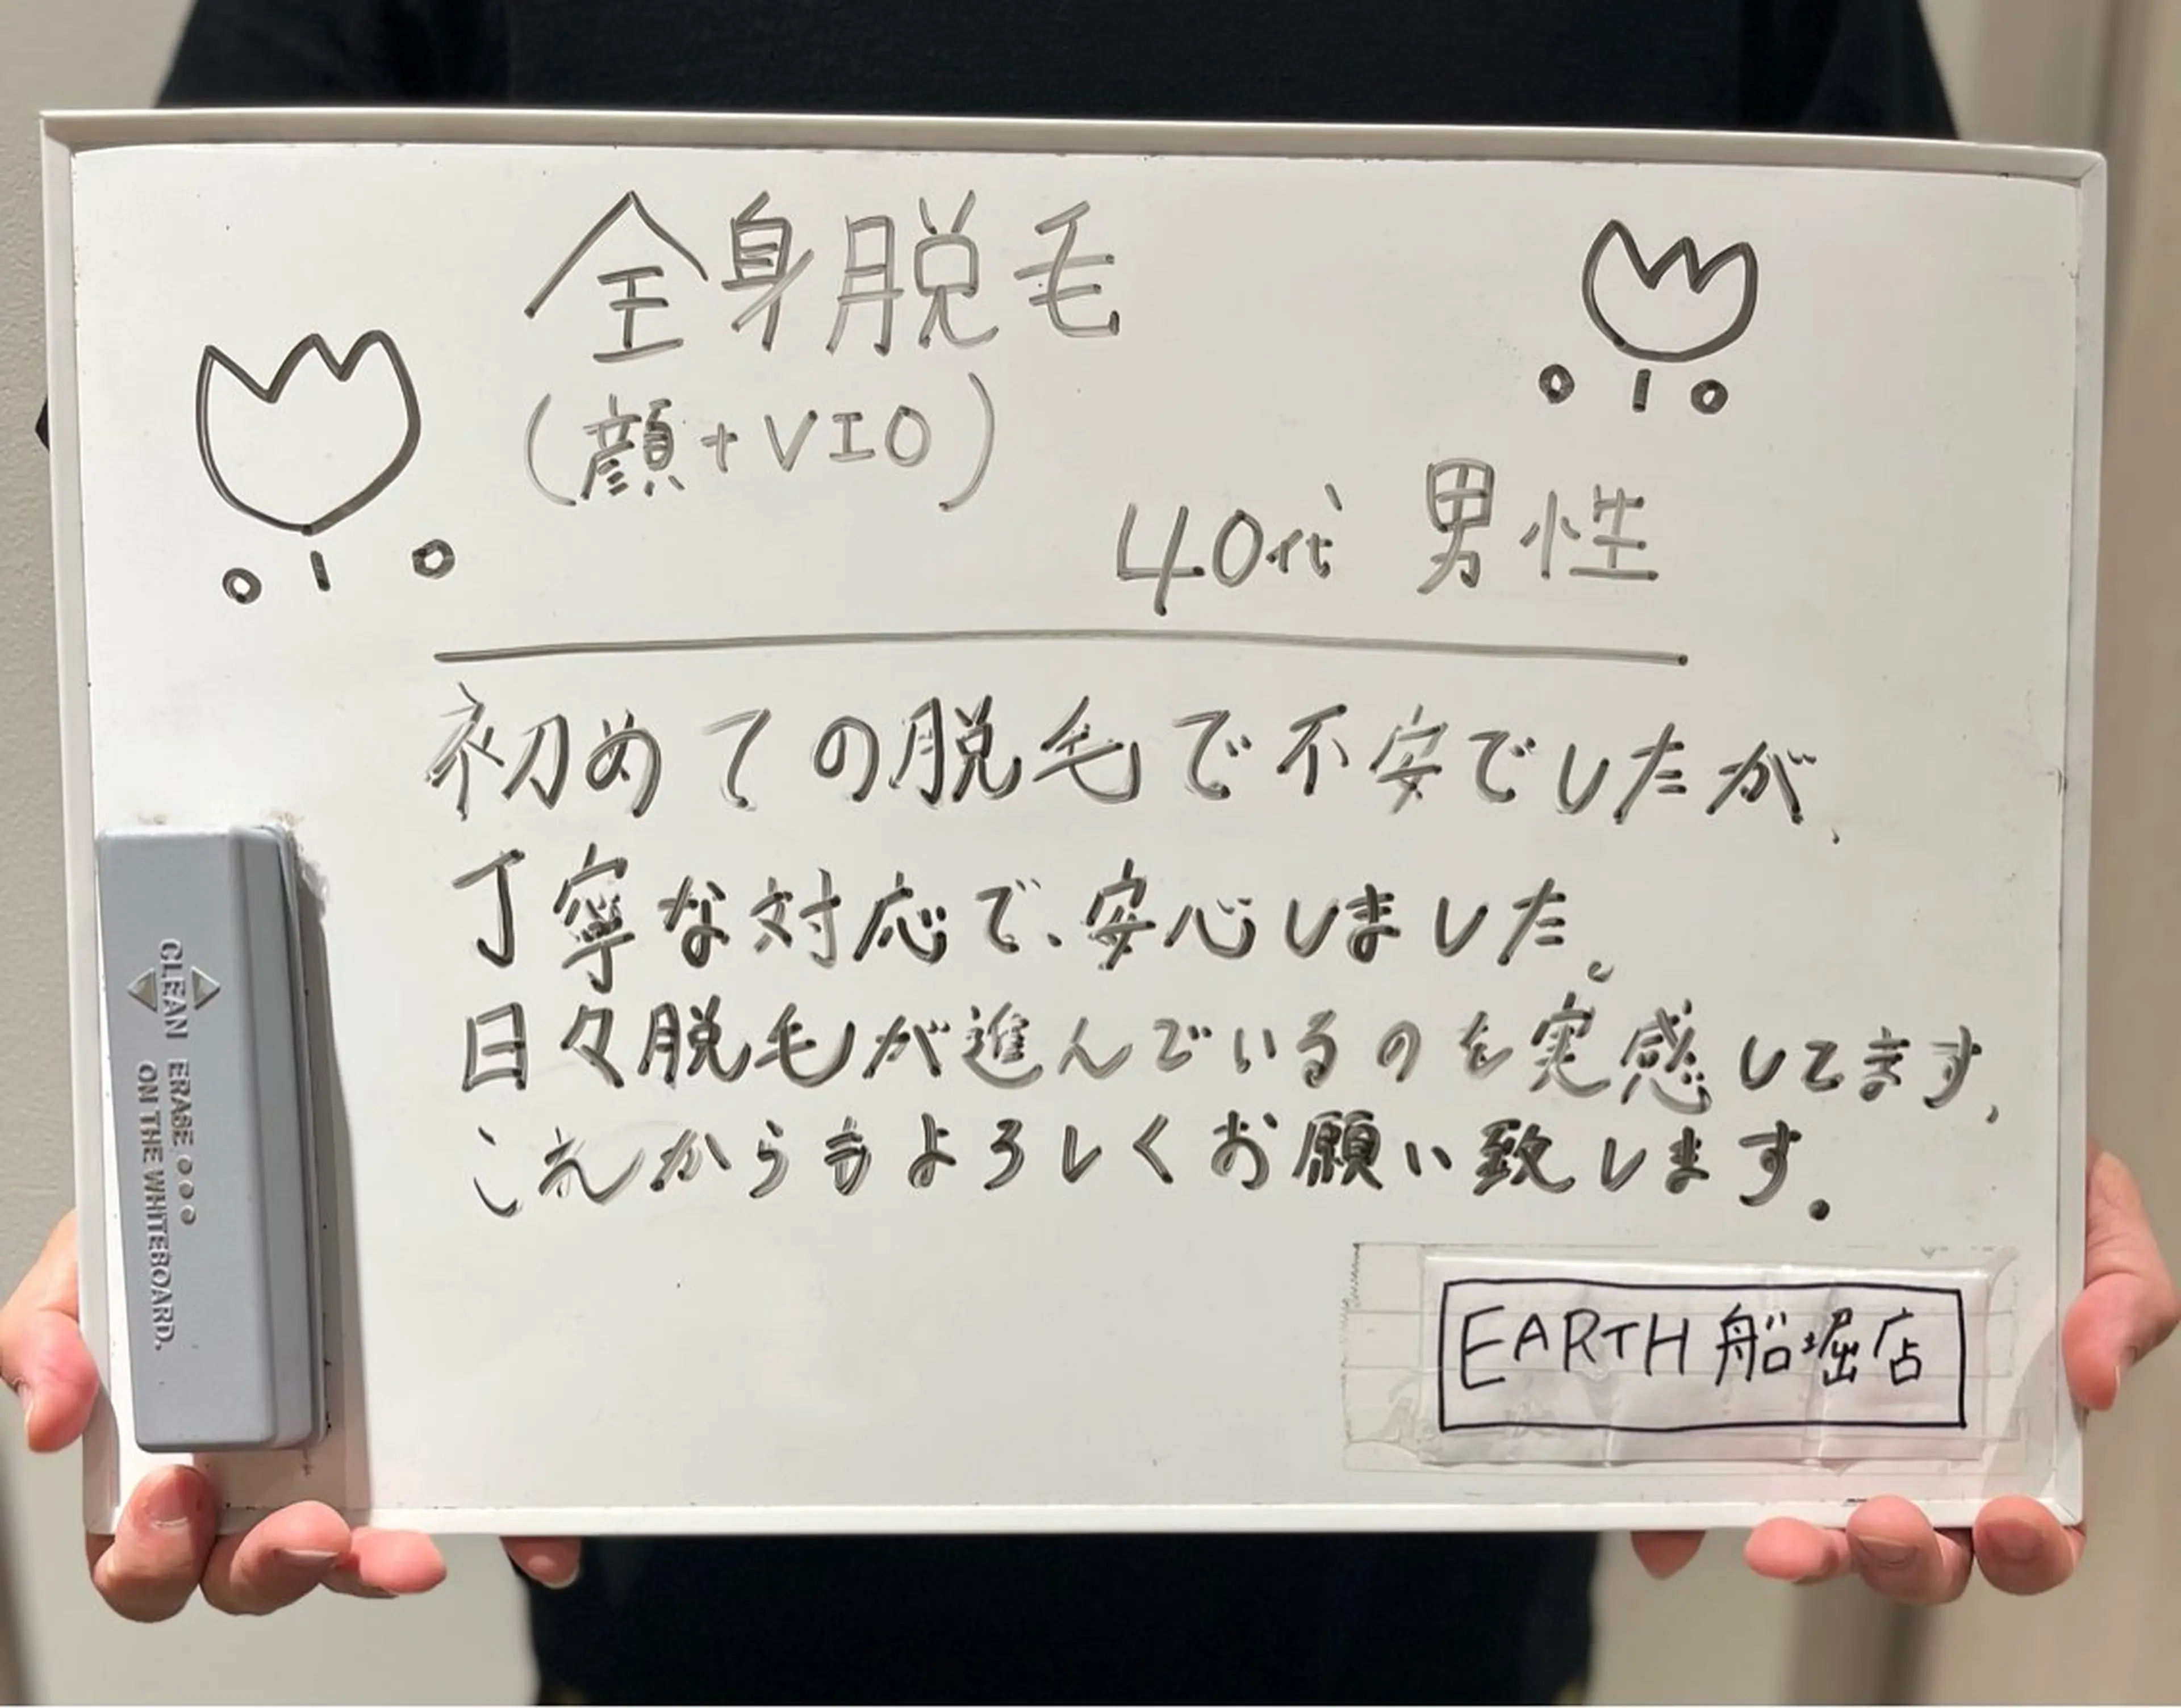 全身脱毛
(顔+VIO)
40代 男性
初めての脱毛で不安でしたが、
丁寧な対応で、安心しました。
日々脱毛が進んでいるのを実感してます、
これからもよろしくお願い致します。
EARTH 船堀店
CLEAN ERASE...
ON THE WHITEBOARD.